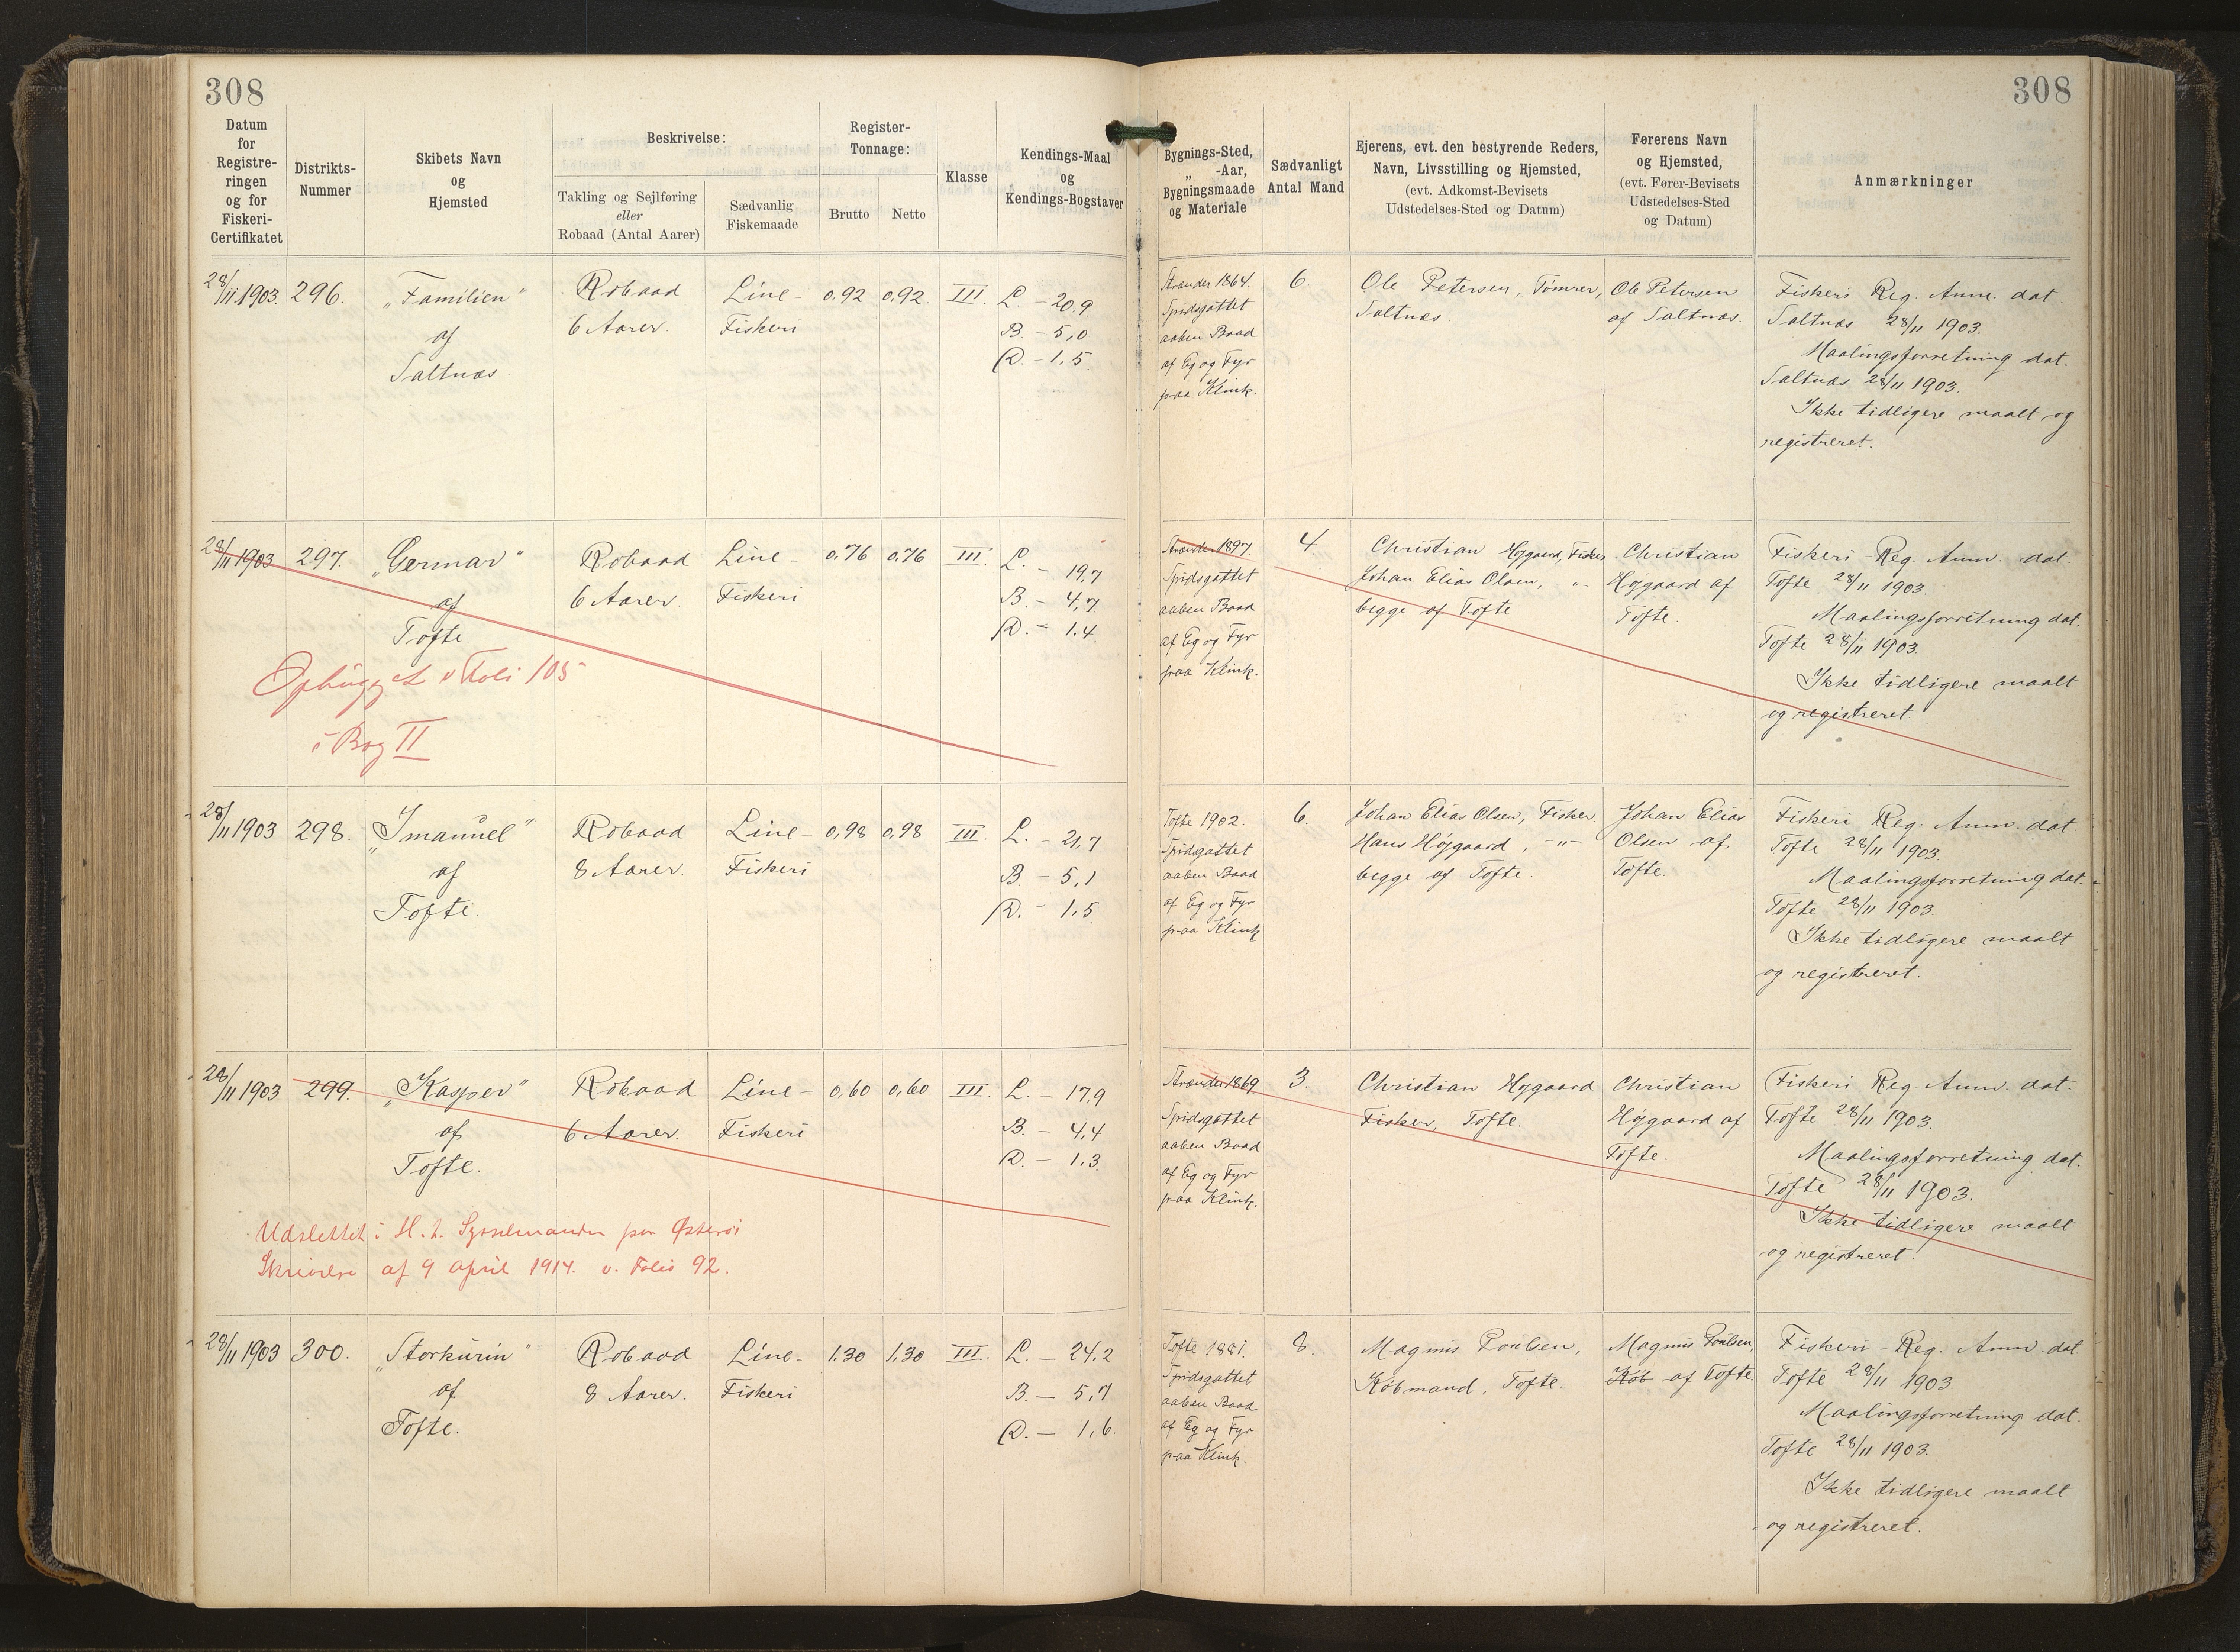 308
308
Datum
for
Registre-
ringen
og for
Fiskeri-
Certifikatet
Distrikts-
Nummer
Skibets Navn
og
Hjemsted
Beskrivelse:
Takling og Sejlføring
eller
Robaad (Antal Aarer)
Sædvanlig
Fiskemaade
Register-
Tonnage:
Brutto
Netto
Klasse
Kendings-Maal
og
Kendings-Bogstaver
Bygnings-Sted,
„ -Aar,
Bygningsmaade
og Materiale
Sædvanligt
Antal Mand
Ejerens, evt. den bestyrende Reders,
Navn, Livsstilling og Hjemsted,
(evt. Adkomst-Bevisets
Udstedelses-Sted og Datum)
Førerens Navn
og Hjemsted,
(evt. Fører-Bevisets
Udstedelses-Sted
og Datum)
Anmærkninger
28/11 1903.
296.
„Familien"
af
Saltnæs.
Robaad
6 Aarer.
Line-
Fiskeri
0,92
0,92.
III.
L. - 20,9
B. - 5,0
D. - 1,5
Strænder 1864.
Spidsgattet
aaben Baad
af Eg og Fyr
paa Klink.
6.
Ole Petersen, Tømrer,
Saltnæs.
Ole Petersen
af Saltnæs.
Fiskeri Reg. Anm. dat.
Saltnæs 28/11 1903.
Maalingsforretning dat.
Saltnæs 28/11 1903.
Ikke tidligere maalt og
registreret.
28/11 1903
297.
„Germar"
af
Tofte
Robaad
6 Aarer.
Line-
Fiskeri
0,76
0,76
III.
L. - 19,7
B. - 4,7
D. - 1,4
Ophugget v Foli 105
i Bog II
Strænder 1897.
Spidsgattet
aaben Baad
af Eg og Fyr
paa Klink.
4.
Christian Højgaard, Fisker
Johan Elias Olsen, -"-
begge af Tofte
Christian
Højgaard af
Tofte.
Fiskeri-Reg. Anm. dat
Tofte 28/11 1903.
Maalingsforretning dat.
Tofte 28/11 1903.
Ikke tidligere maalt
og registreret.
28/11 1903
298.
„Imanuel"
af
Tofte.
Robaad
8 Aarer.
Line-
Fiskeri
0,98
0,98
III.
L. - 21,7
B. - 5,1
D. - 1,5
Tofte 1902.
Spidsgattet
aaben Baad
af Eg og Fyr
paa Klink
6.
Johan Elias Olsen, Fisker
Hans Højgaard, -"-
begge af Tofte.
Johan Elias
Olsen af
Tofte.
Fiskeri Reg. Anm. dat.
Tofte 28/11 1903.
Maalingsforretning dat.
Tofte 28/11 1903.
Ikke tidligere maalt
og registreret.
28/11 1903
299.
„Kasper"
af
Tofte.
Robaad
6 Aarer.
Line-
Fiskeri
0,60
0,60
III.
L. - 17,9
B. - 4,4
D. - 1,3
Udslettet i H. t. Sysselmanden paa Østerøs
Skrivelse af 9 april 1914. v. Folio 92.
Strænder 1869
Spidsgattet
aaben Baad
af Eg og Fyr
paa Klink.
3.
Christian Højgaard
Fisker, Tofte.
Christian
Højgaard af
Tofte.
Fiskeri Reg. Anm. dat.
Tofte 28/11 1903.
Maalingsforretning dat.
Tofte 28/11 1903.
Ikke tidligere maalt
og registreret.
28/11 1903
300.
„Storkurin"
af
Tofte.
Robaad
8 Aarer.
Line-
Fiskeri
1,30
1,30
III.
L. - 24,2
B - 5,7
D. - 1,6.
Tofte 1881.
Spidsgattet
aaben Baad
af Eg og Fyr
paa Klink.
8.
Magnus Poulsen,
Købmand, Tofte.
Magnus Poulsen,
Køb af Tofte.
Fiskeri-Reg. Anm. dat.
Tofte 28/11 1903
Maalingsforretning dat.
Tofte 28/11 1903.
Ikke tidligere maalt
og registreret.